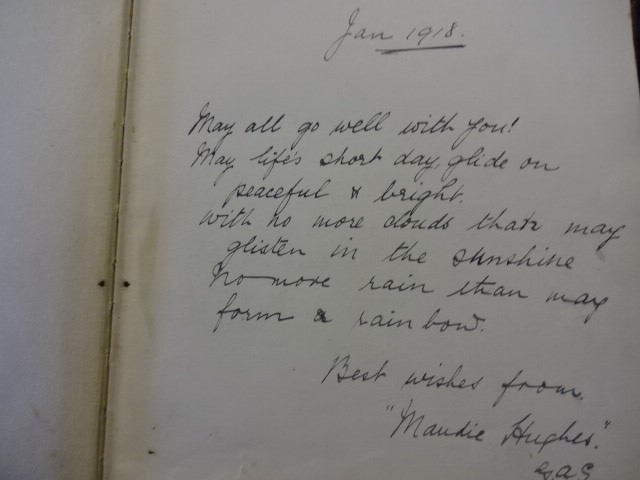 Jan 1918.
May all go well with you!
May life's short day glide on
peaceful & bright.
With no more clouds than may
glisten in the sunshine
No more rain than may
form a rainbow.
Best wishes from.
"Maudie Hughes."